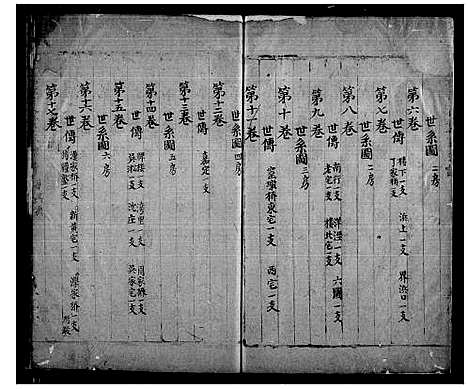 世系圖 二房
第六卷
世傳 樓下一支 浜上一支 界浜口一支
丁家橋一支
第七卷
世系圖 二房
第八卷
世傳 南行一支 洋涇一支 六團一支
老宅一支 樓北宅一支
第九卷
世系圖 三房
第十卷
世傳 宝瓊橋東宅一支 西宅一支
第十一卷
世系圖 四房
第十二卷
世傳 嘉定一支
第十三卷
世系圖 五房
第十四卷
世傳 牌樓一支 灣里一支 周家橋一支
吳淞一支 沈庄一支 吳家宅一支
第十五卷
世系圖 六房
第十六卷
世傳 潘家橋一支 新黃宅一支 潘家橋一支
第十七卷